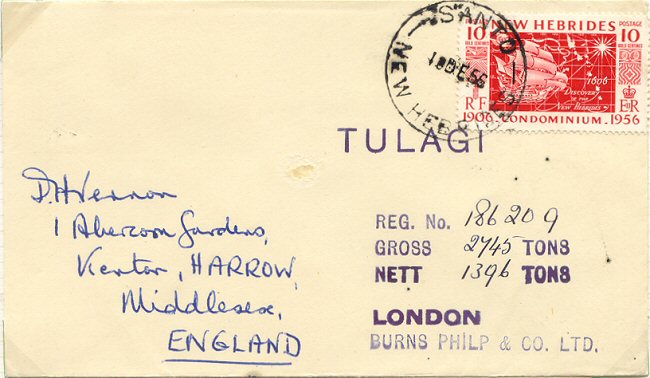 SANTO
18 DE 56
NEW HEBRIDES
NEW HEBRIDES
POSTAGE
POSTAGE
10
10
GOLD CENTIMES
GOLD CENTIMES
1606
DISCOVERY
OF THE
NEW HEBRIDES
RF
E II R
1906 CONDOMINIUM 1956
TULAGI
D. H Vernon
1 Abercorn Gardens,
Kenton, HARROW,
Middlesex,
ENGLAND
REG. No. 186209
GROSS 2745 TONS
NETT 1396 TONS
LONDON
BURNS PHILP & CO. LTD.